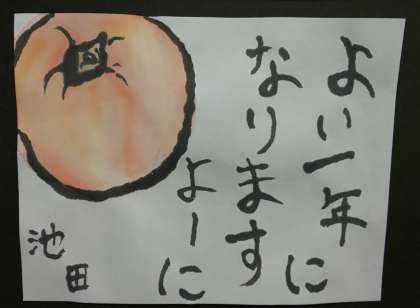 よい一年に
なりますす
よーに
池田